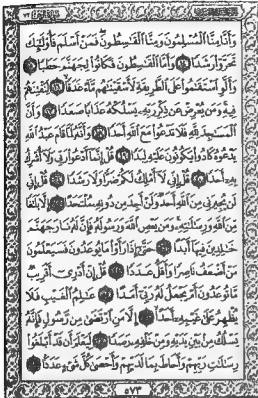 وَأَنَّا مِنَّا الْمُسْلِمُونَ وَمِنَّا الْقَاسِطُونَ فَمَنْ أَسْلَمَ فَأُولَٰئِكَ
تَحَرَّوْا رَشَدًا ١٤ وَأَمَّا الْقَاسِطُونَ فَكَانُوا لِجَهَنَّمَ حَطَبًا ١٥
وَأَلَّوِ اسْتَقَامُوا عَلَى الطَّرِيقَةِ لَأَسْقَيْنَاهُم مَّاءً غَدَقًا ١٦ لِّنَفْتِنَهُمْ
فِيهِ وَمَن يُعْرِضْ عَن ذِكْرِ رَبِّهِ يَسْلُكْهُ عَذَابًا صَعَدًا ١٧ وَأَنَّ
الْمَسَاجِدَ لِلَّهِ فَلَا تَدْعُوا مَعَ اللَّهِ أَحَدًا ١٨ وَأَنَّهُ لَمَّا قَامَ عَبْدُ اللَّهِ
يَدْعُوهُ كَادُوا يَكُونُونَ عَلَيْهِ لِبَدًا ١٩ قُلْ إِنَّمَا أَدْعُو رَبِّي وَلَا أُشْرِكُ
بِهِ أَحَدًا ٢٠ قُلْ إِنِّي لَا أَمْلِكُ لَكُمْ ضَرًّا وَلَا رَشَدًا ٢١ قُلْ إِنِّي
لَن يُجِيرَنِي مِنَ اللَّهِ أَحَدٌ وَلَنْ أَجِدَ مِن دُونِهِ مُلْتَحَدًا ٢٢ إِلَّا بَلَاغًا
مِّنَ اللَّهِ وَرِسَالَاتِهِ وَمَن يَعْصِ اللَّهَ وَرَسُولَهُ فَإِنَّ لَهُ نَارَ جَهَنَّمَ
خَالِدِينَ فِيهَا أَبَدًا ٢٣ حَتَّىٰ إِذَا رَأَوْا مَا يُوعَدُونَ فَسَيَعْلَمُونَ
مَنْ أَضْعَفُ نَاصِرًا وَأَقَلُّ عَدَدًا ٢٤ قُلْ إِنْ أَدْرِي أَقَرِيبٌ
مَّا تُوعَدُونَ أَمْ يَجْعَلُ لَهُ رَبِّي أَمَدًا ٢٥ عَالِمُ الْغَيْبِ فَلَا
يُظْهِرُ عَلَىٰ غَيْبِهِ أَحَدًا ٢٦ إِلَّا مَنِ ارْتَضَىٰ مِن رَّسُولٍ فَإِنَّهُ
يَسْلُكُ مِن بَيْنِ يَدَيْهِ وَمِنْ خَلْفِهِ رَصَدًا ٢٧ لِّيَعْلَمَ أَن قَدْ أَبْلَغُوا
رِسَالَاتِ رَبِّهِمْ وَأَحَاطَ بِمَا لَدَيْهِمْ وَأَحْصَىٰ كُلَّ شَيْءٍ عَدَدًا ٢٨
٥٧٣